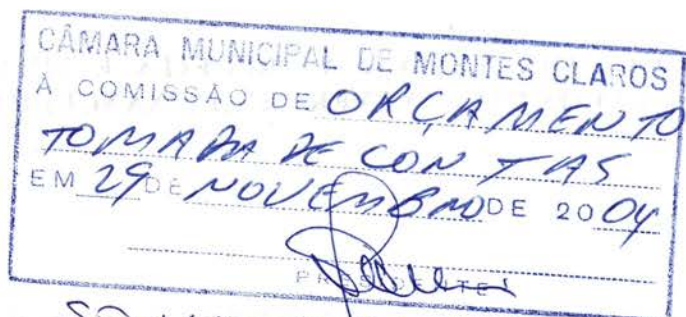 CÂMARA MUNICIPAL DE MONTES CLAROS
À COMISSÃO DE ORÇAMENTO
TOMADA DE CONTAS
EM 29 DE NOVEMBRO DE 2004
PRESIDENTE